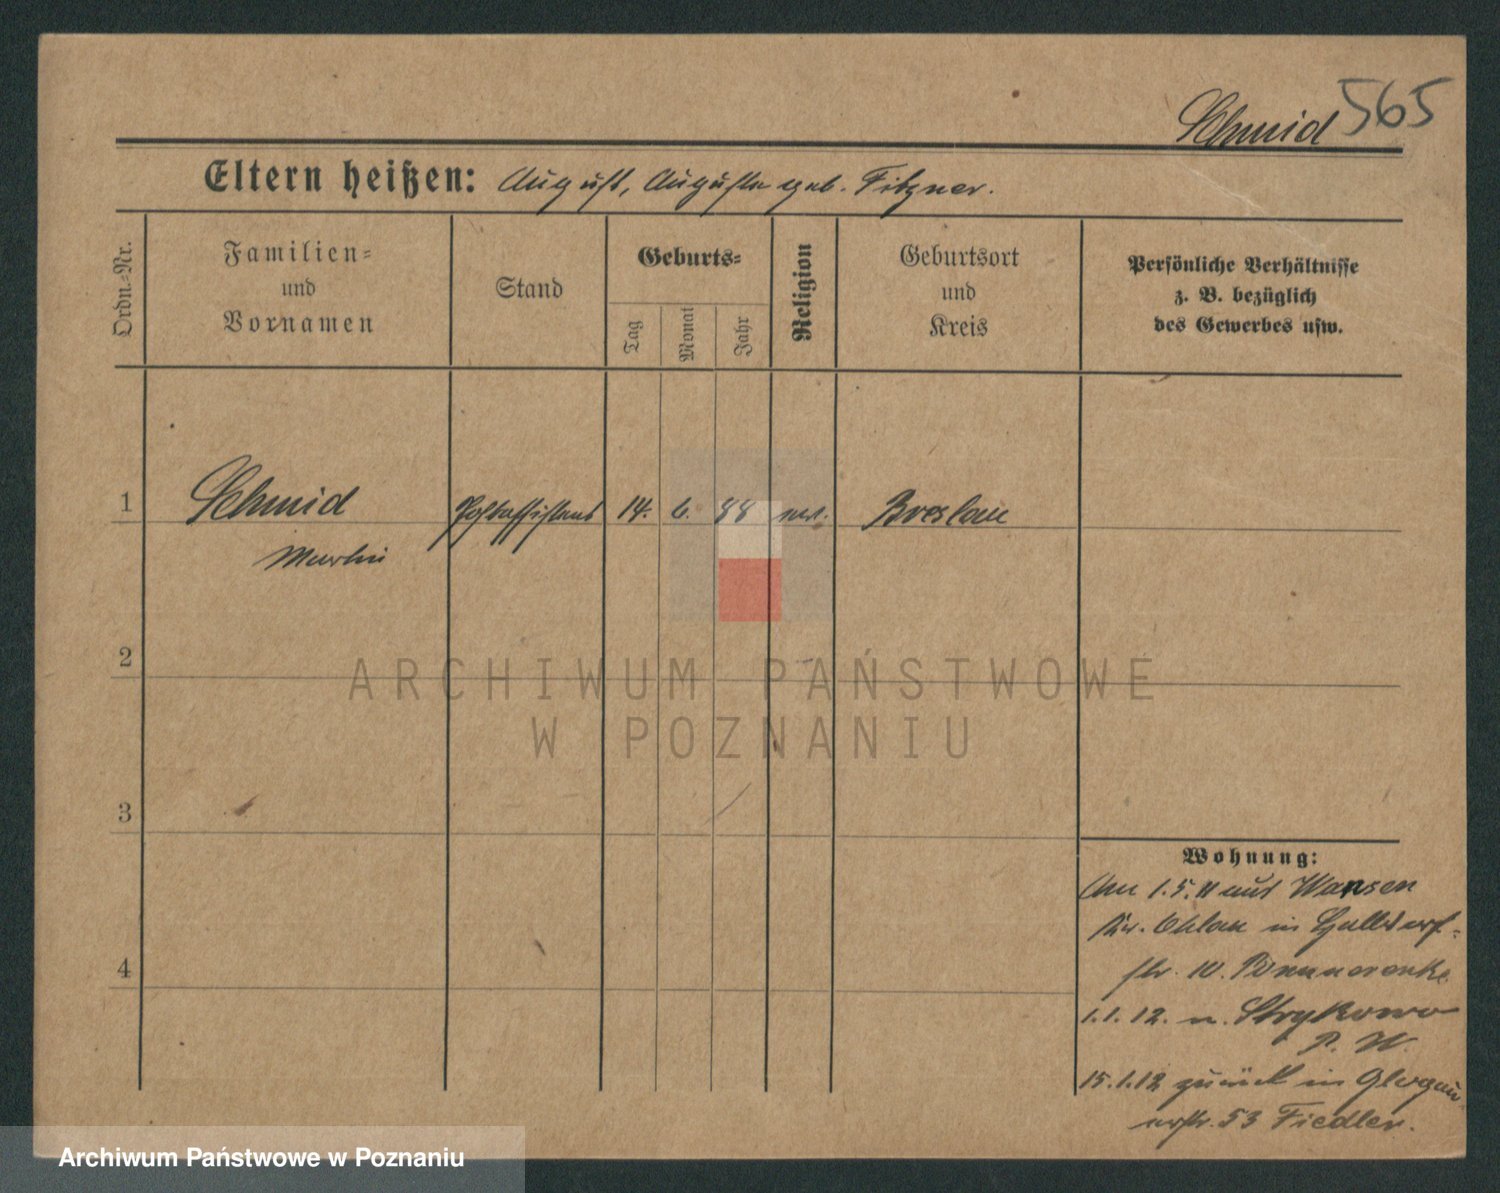 Schmid 565
Eltern heißen: August, Auguste geb. Fitzner.
Ordn.-Nr.
Familien-
und
Vornamen
Stand
Geburts-
Tag
Monat
Jahr
Religion
Geburtsort
und
Kreis
Persönliche Verhältnisse
z. B. bezüglich
des Gewerbes usw.
1 Schmid Postassistent 14. 6. 88 Breslau
Martin
2
3
4
Wohnung:
Am 1.5.11 aus Wansen
Kr. Ohlau in
str. 10. Pommerenke
1.1.12. n. Strykowo
P. W.
15.1.12 zurück in Glogau-
erstr. 53 Fiedler.
ARCHIWUM PAŃSTWOWE
W POZNANIU
Archiwum Państwowe w Poznaniu